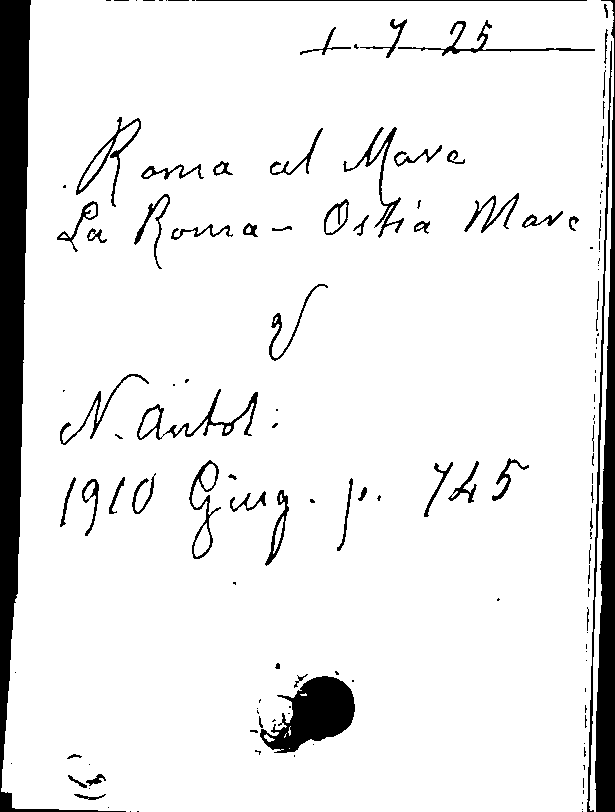 1.7.25
Roma al Mare
La Roma - Ostia Mare
V
N. Antol:
1910 Giug. p. 745